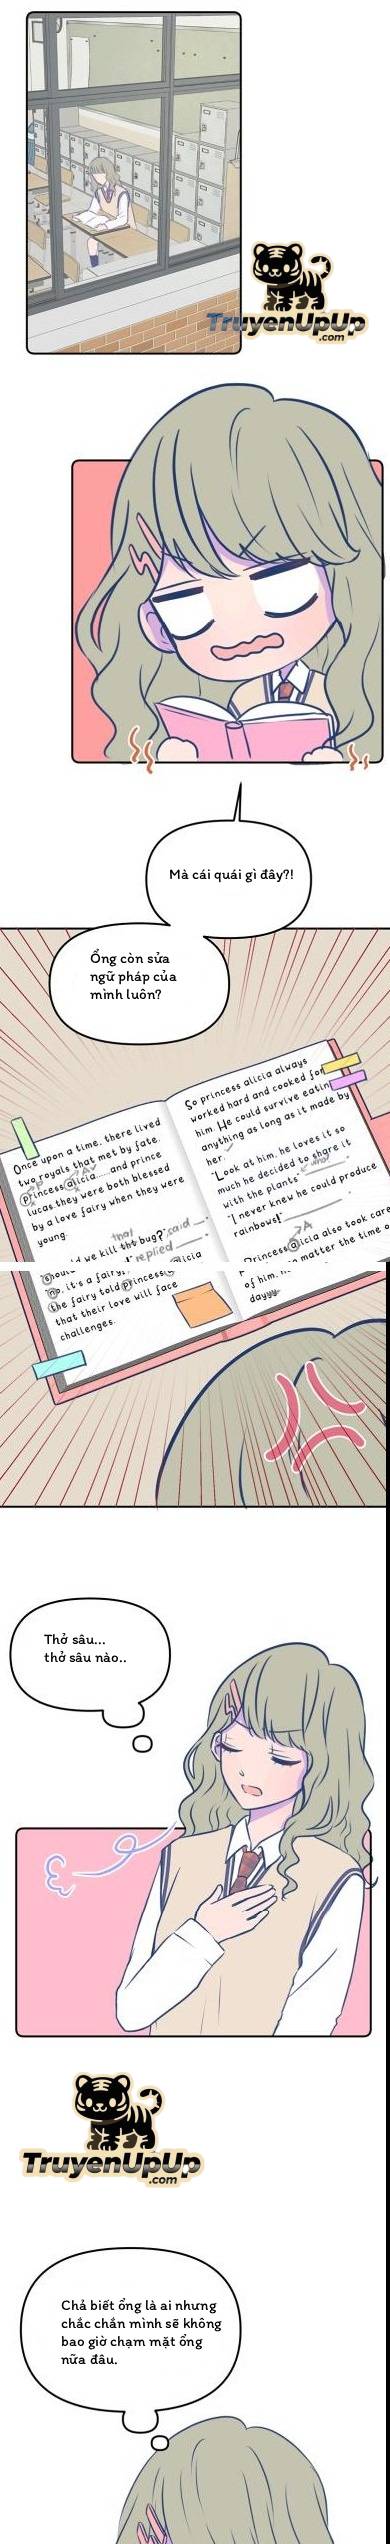 TruyenUpUp
.com
Mà cái quái gì đây?!
Ổng còn sửa
ngữ pháp của
mình luôn?
Once upon a time, there lived
two royals that met by fate.
princess alicia and prince
lucas they were both blessed
by a love fairy when they were
young.
we kill the bug?" said
replied
no, it's a fairy
the fairy told princess alicia
that their love will face
challenges.
So princess alicia always
worked hard and cooked for
him. He could survive eating
anything as long as it made by
her.
"Look at him, he loves it so
much he decided to share it
with the plants"
"I never knew he could produce
rainbows!"
Princess alicia also took care
matter the time o
of him,
dayyy.
Thở sâu...
thở sâu nào..
TruyenUpUp
.com
Chả biết ổng là ai nhưng
chắc chắn mình sẽ không
bao giờ chạm mặt ổng
nữa đâu.